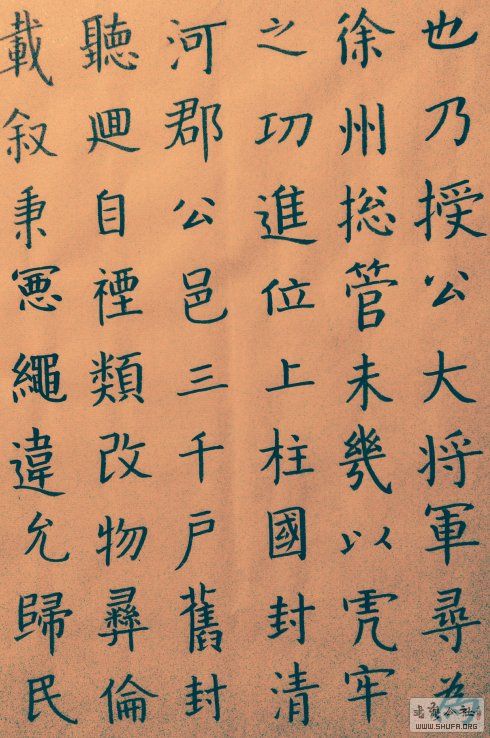 也乃授公大将軍尋為
徐州捴管未幾以虎牢
之功進位上柱國封清
河郡公邑三千戶舊封
聽迴自禋類改物彝倫
載叙秉憲繩違允歸民
书法公社
WWW.SHUFA.ORG